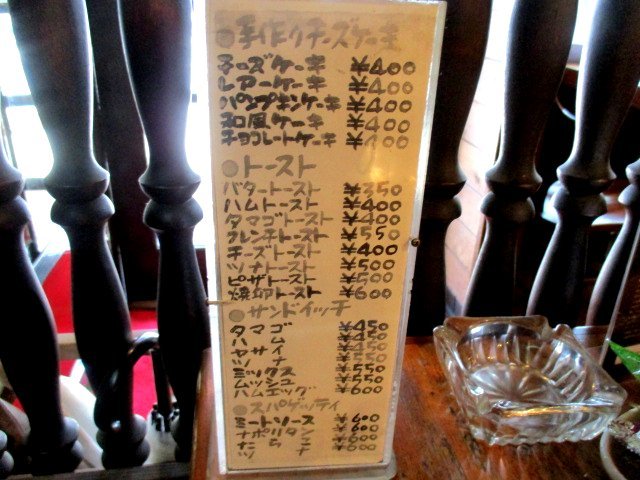 ●手作りチーズケーキ
チーズケーキ ¥400
レアーケーキ ¥400
パンプキンケーキ ¥400
和風ケーキ ¥400
チョコレートケーキ ¥400
●トースト
バタートースト ¥350
ハムトースト ¥400
タマゴトースト ¥400
フレンチトースト ¥550
チーズトースト ¥400
ツナトースト ¥500
ピザトースト ¥500
焼卵トースト ¥600
●サンドイッチ
タマゴ ¥450
ハム ¥450
ヤサイ ¥450
ツナ ¥550
ミックス ¥550
ムッシュ ¥550
ハムエッグ ¥600
●スパゲッティ
ミートソース ¥600
ナポリタン ¥600
たらこ ¥600
ツナ ¥600